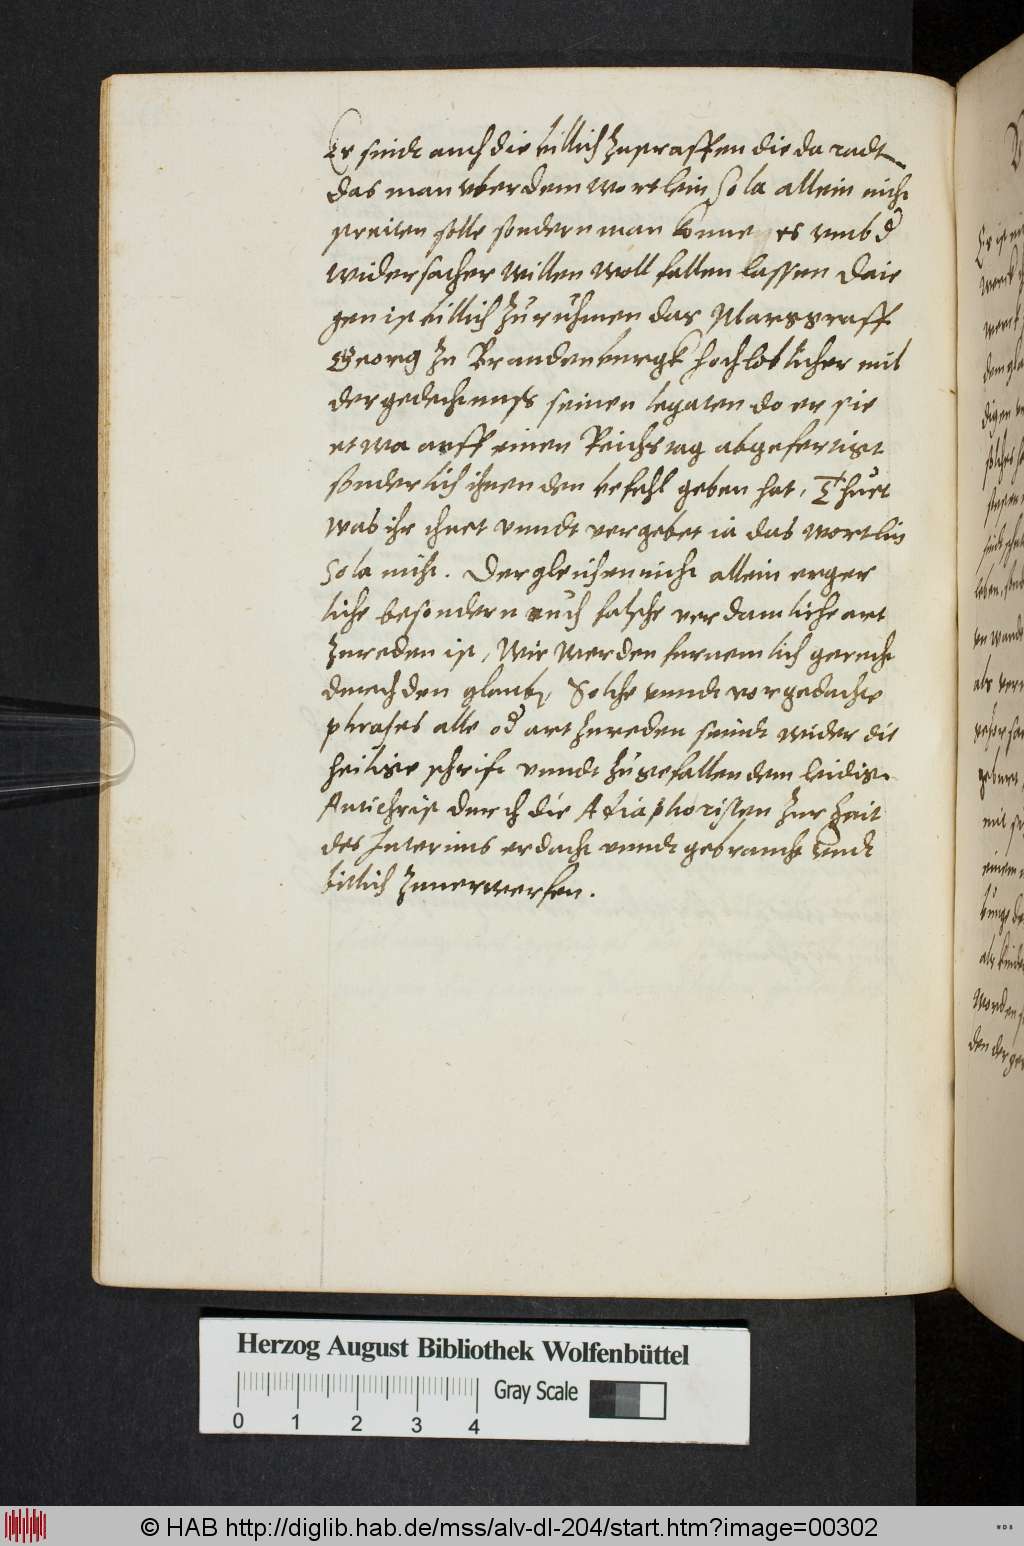 Es sindt auch die billich zustraffen die da radt
das man vber dem wortlein Sola allein nicht
streiten solle sondern man konne es vmb d
widersacher willen woll fallen lassen Daie
gen ist billich zu ruhmen das Marggraff
Georg zu Brandenburgk hochloblicher mil
der gedechtnuss seinen legaten do er sie
etwa auff einen Reichstag abgefertigt
sonderlich ihnen den befehl geben hat, Thuet
was ihr thuet vnndt vergebet ia das wortlin
Sola nicht. Dergleichen nicht allein erger
liche besondern auch falsche verdamliche art
zureden ist, Wir werden furnemlich gerecht
durch den glaub, Solche vnndt vorgedachte
phrases alle od art zureden seindt wider die
heilige schrift vnndt zu gefallen dem leidig
Antichrist durch die Adiaphoristen zur Zeit
des Interims erdacht vnndt gebraucht vndt
billich zuuerwerfen.
Herzog August Bibliothek Wolfenbüttel
Gray Scale
0 1 2 3 4
© HAB http://diglib.hab.de/mss/alv-dl-204/start.htm?image=00302